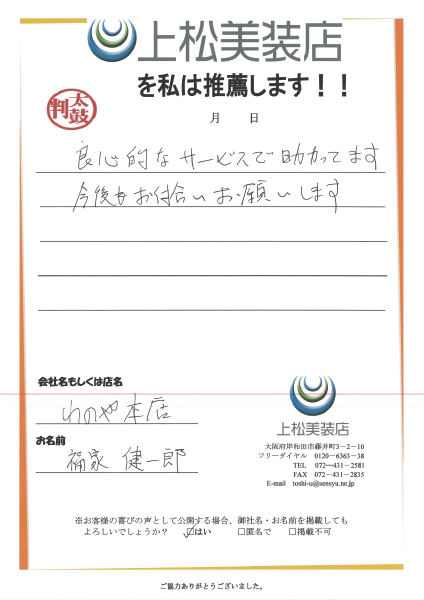 上松美装店
を私は推薦します！！
太鼓判
月　日
良心的なサービスで助かってます
今後もお付合いお願いします
会社名もしくは店名
いのや本店
お名前
福家 健一郎
上松美装店
大阪府岸和田市藤井町3－2－10
フリーダイヤル　0120－6363－38
TEL　072－431－2581
FAX　072－431－2835
E-mail　toshi-u@sensyu.ne.jp
※お客様の喜びの声として公開する場合、御社名・お名前を掲載しても
よろしいでしょうか？　☑はい　□匿名で　□掲載不可
ご協力ありがとうございました。